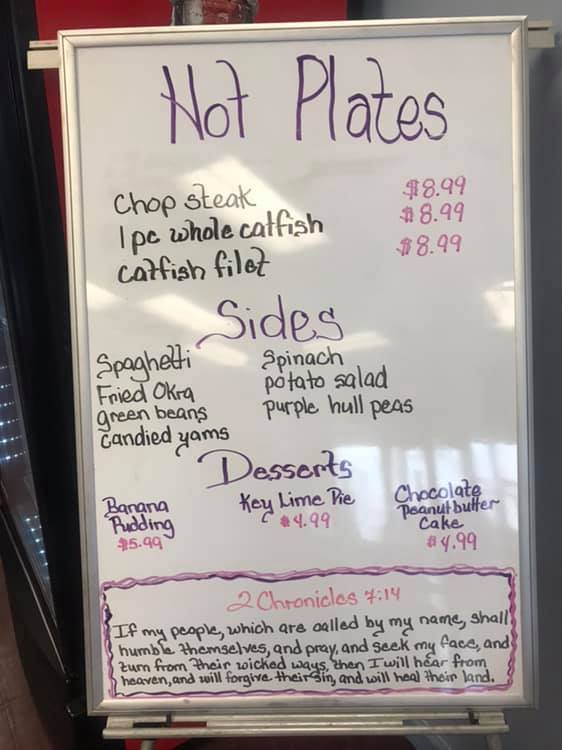 Hot Plates
Chop steak $8.99
1 pc whole catfish $8.99
catfish filet $8.99
Sides
Spaghetti Spinach
Fried Okra potato salad
green beans purple hull peas
candied yams
Desserts
Banana Pudding $5.99
Key Lime Pie $4.99
Chocolate Peanut butter Cake $4.99
2 Chronicles 7:14
If my people, which are called by my name, shall
humble themselves, and pray, and seek my face, and
turn from their wicked ways, then I will hear from
heaven, and will forgive their sin, and will heal their land.